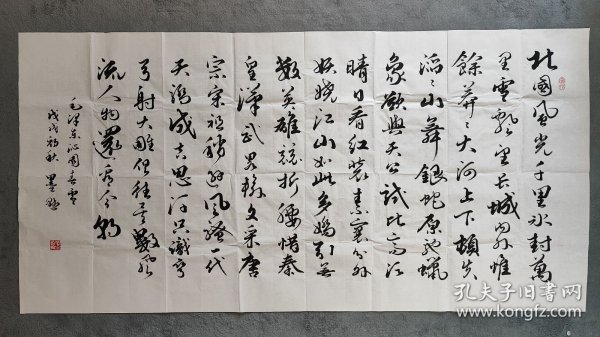 北國風光千里冰封萬
里雪飄望長城內外惟
餘莽々大河上下頓失
滔々山舞銀蛇原馳蠟
象欲與天公試比高須
晴日看紅裝素裹分外
妖嬈江山如此多嬌引無
數英雄競折腰惜秦
皇漢武略輸文采唐
宗宋祖稍遜風騷一代
天驕成吉思汗只識彎
弓射大雕俱往矣數風
流人物還看今朝
毛澤東沁園春雪
戊戌初秋 墨
孔夫子旧书网
www.kongfz.com